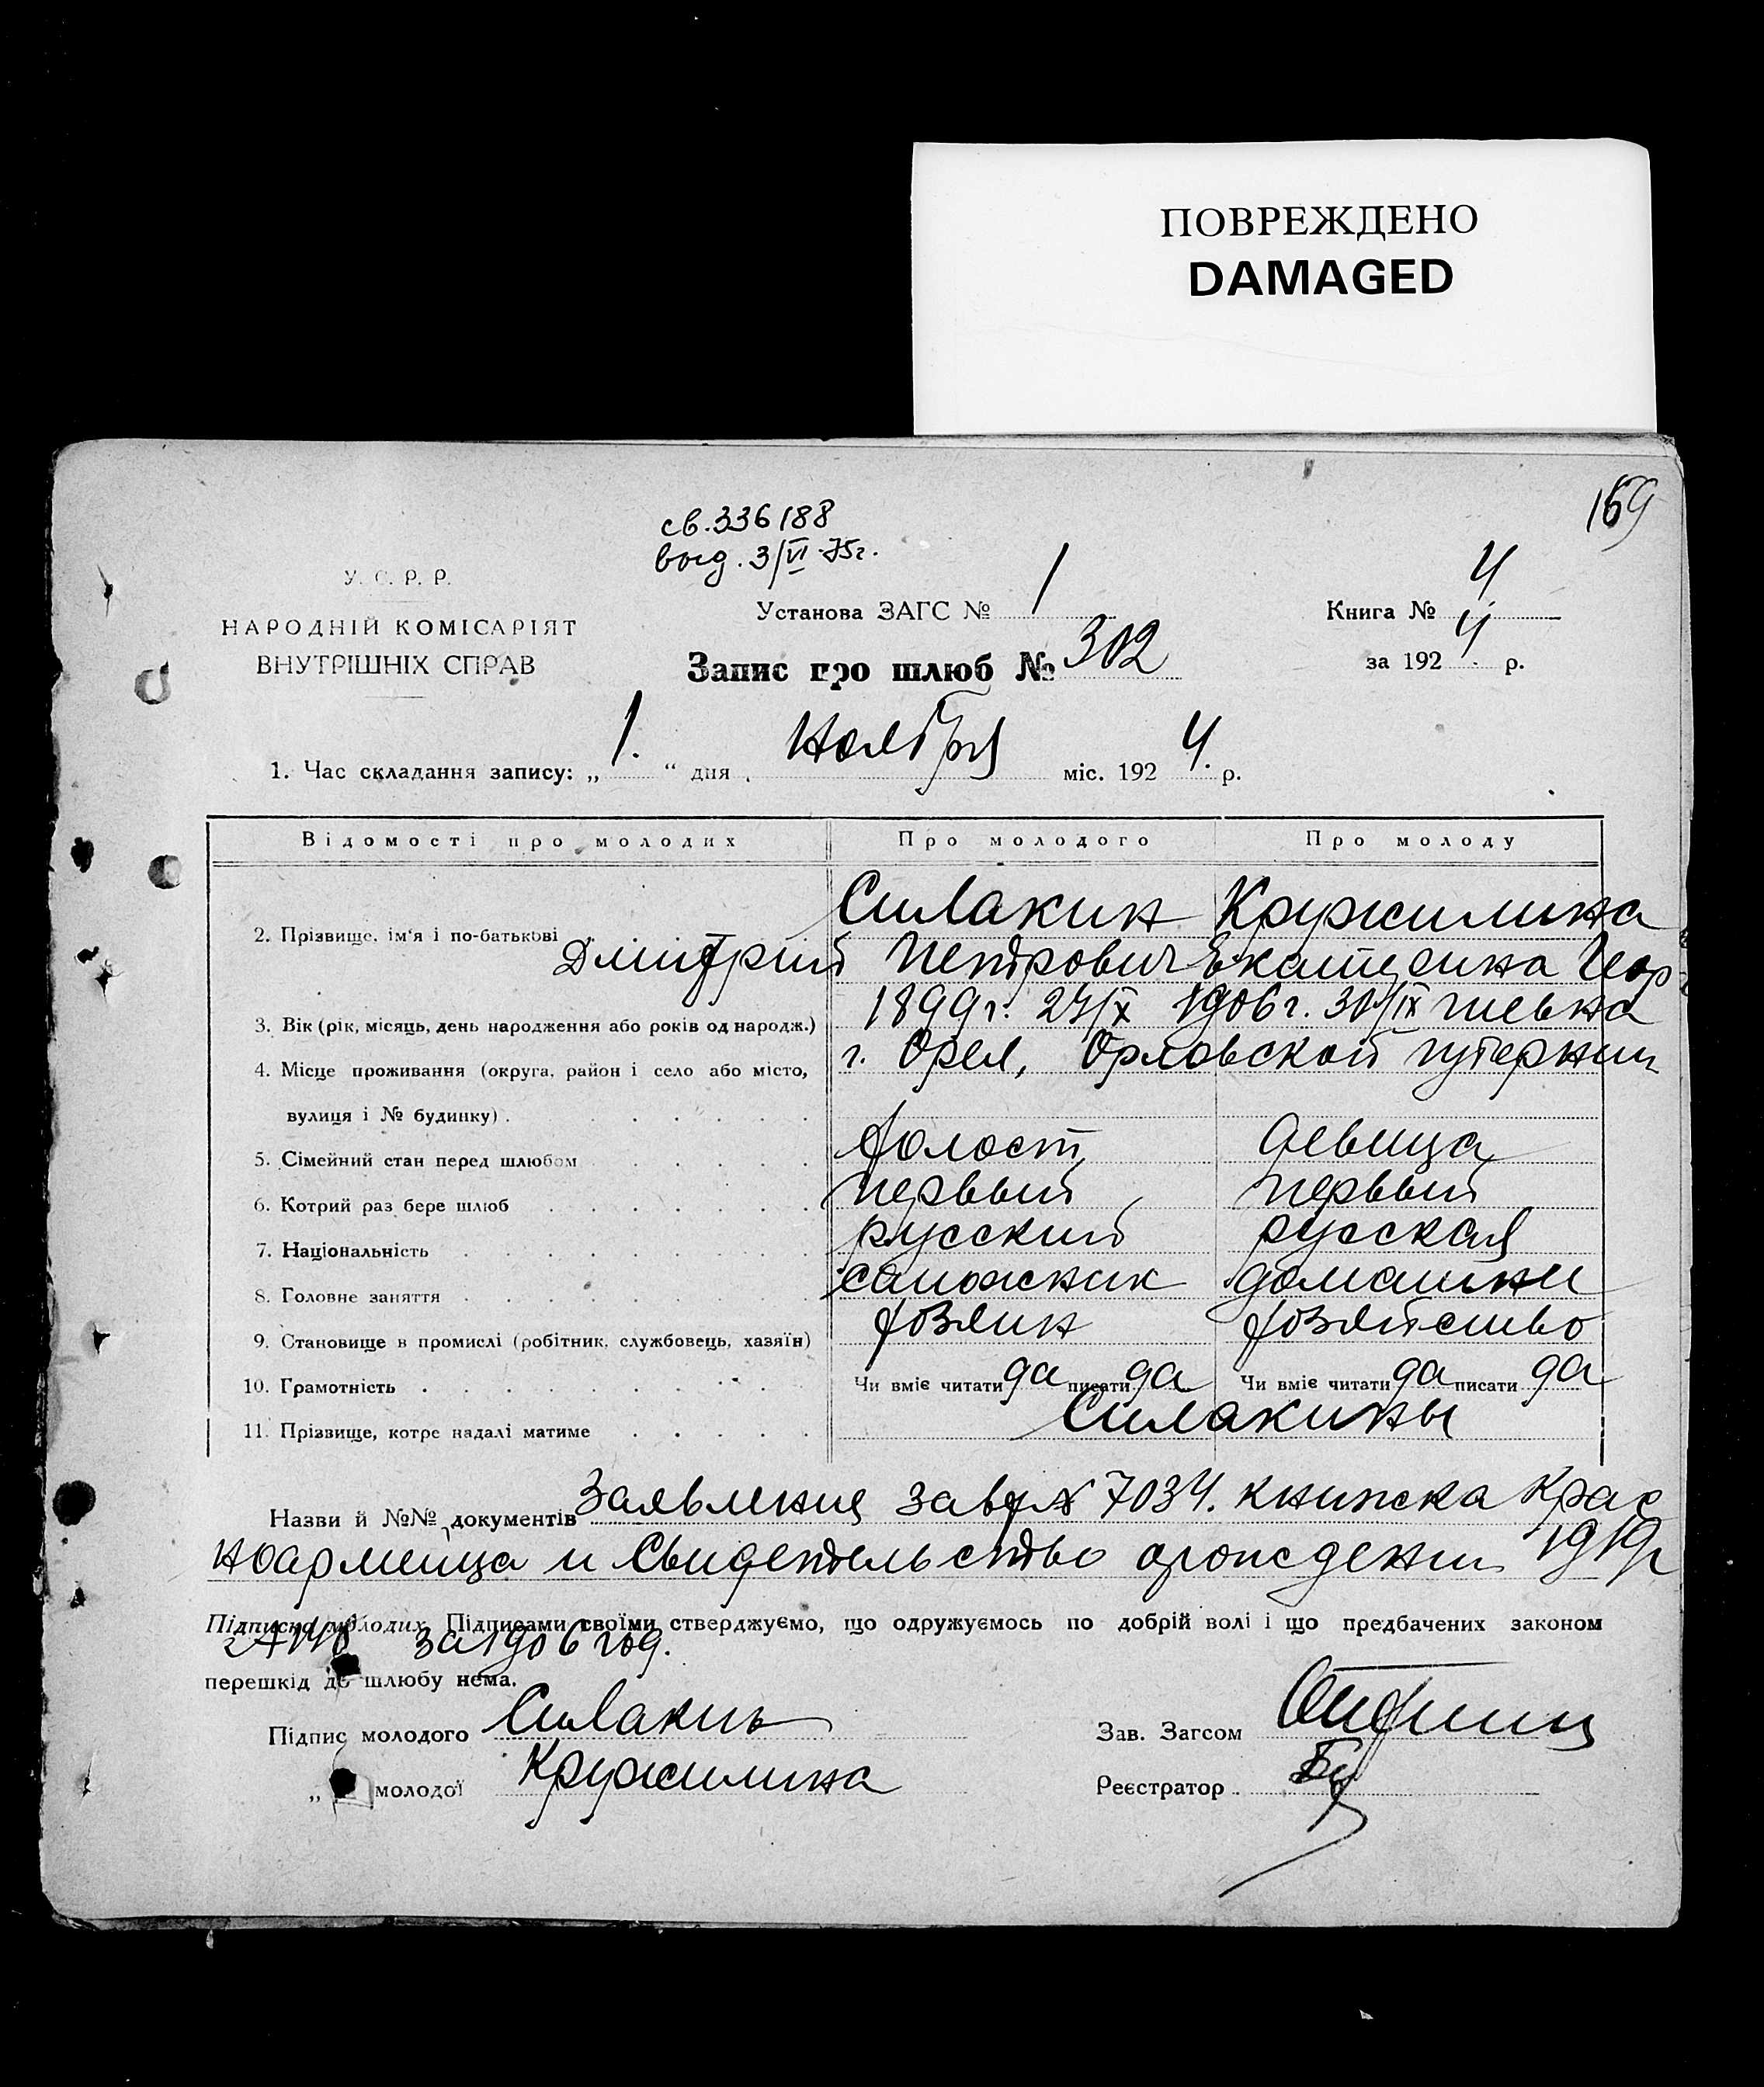 ПОВРЕЖДЕНО
DAMAGED
169
св. 336188
выд. 3/VI-75г.
У. С. Р. Р.
НАРОДНІЙ КОМІСАРІЯТ
ВНУТРІШНІХ СПРАВ
Установа ЗАГС № 1
Книга № 4
Запис про шлюб № 302
за 1924 р.
1. Час складання запису: „1.“ дня Ноября міс. 1924. р.
Відомості про молодих Про молодого Про молоду
2. Прізвище, ім'я і по-батькові Силакин Кружилина
Дмитрий Петрович Екатерина Геор-
3. Вік (рік, місяць, день народження або років од народж.) 1899г. 27/X 1906г. 30/IX гиевна
4. Місце проживання (округа, район і село або місто, г. Орел, Орловской губернии
вулиця і № будинку)
5. Сімейний стан перед шлюбом холост девица
6. Котрий раз бере шлюб первый первый
7. Національність русский русская
8. Головне заняття сапожник домашни
9. Становище в промислі (робітник, службовець, хазяїн) хозяин хозяйство
10. Грамотність Чи вміє читати да писати да Чи вміє читати да писати да
11. Прізвище, котре надалі матиме Силакины
Назви й №№ документів Заявление за № 7034. книжка Крас
ноармейца и Свидетельство о рождении 1919г
Підписка молодих. Підписами своїми стверджуємо, що одружуємось по добрій волі і що предбачених законом
за 1906 год.
перешкід до шлюбу нема.
Підпис молодого Силакин
Зав. Загсом
„ молодої Кружилина
Реєстратор